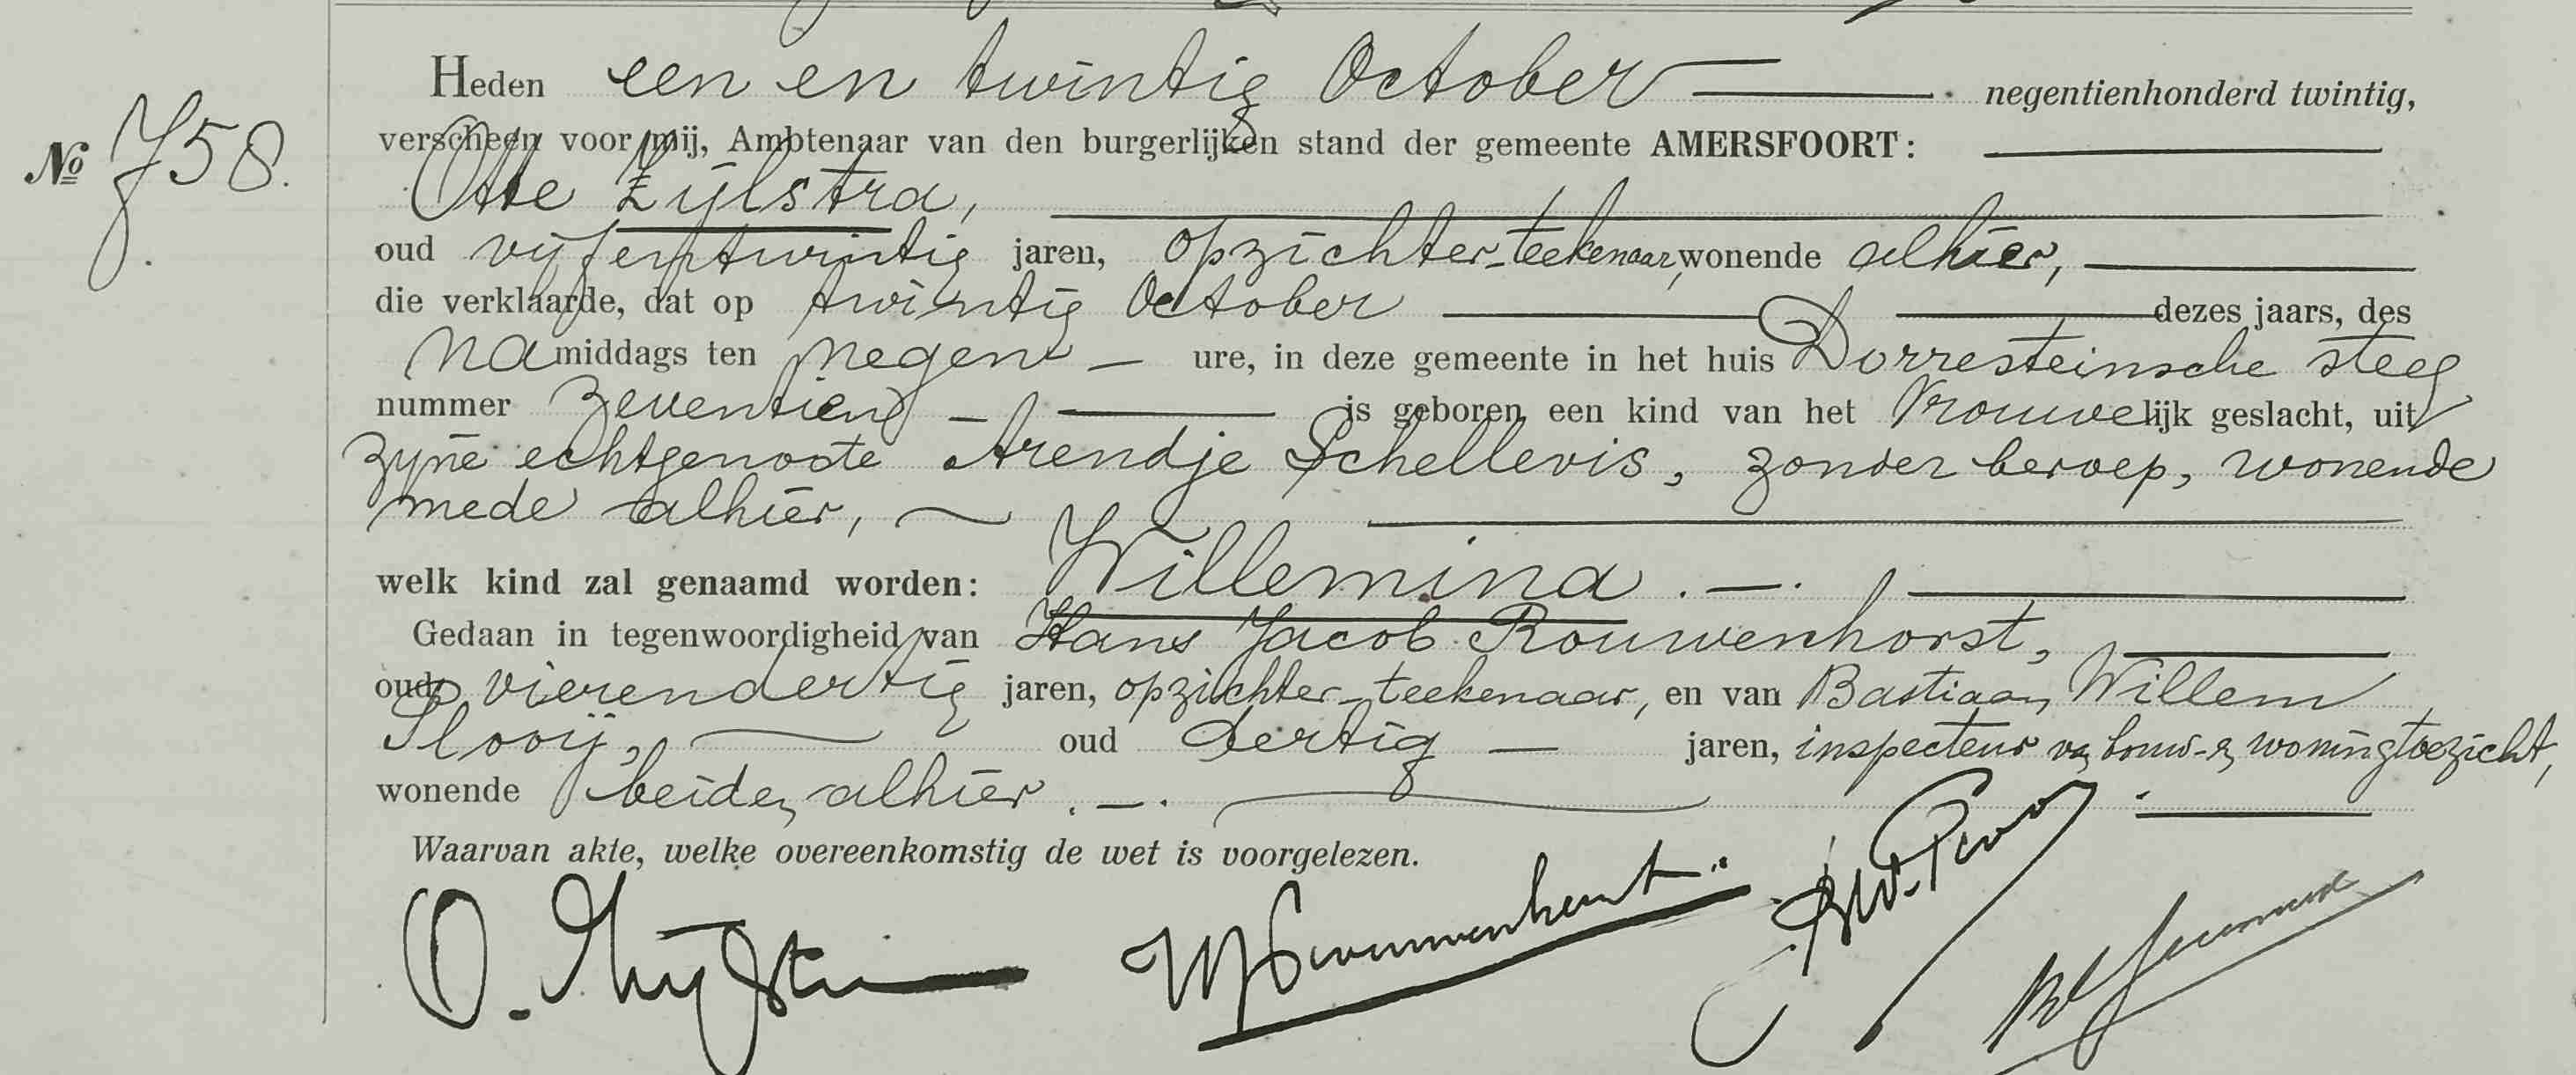 Heden een en twintig October negentienhonderd twintig,
No 758.
verscheen voor mij, Ambtenaar van den burgerlijken stand der gemeente AMERSFOORT:
Otte Zijlstra,
oud vijfentwintig jaren, opzichter-teekenaar, wonende alhier,
die verklaarde, dat op twintig October dezes jaars, des
namiddags ten negen ure, in deze gemeente in het huis Dorresteinsche steeg
nummer zeventien is geboren een kind van het Vrouwelijk geslacht, uit
zijne echtgenoote Arendje Schellevis, zonder beroep, wonende
mede alhier,
welk kind zal genaamd worden: Willemina.
Gedaan in tegenwoordigheid van Hans Jacob Rouwenhorst,
oud vierendertig jaren, opzichter-teekenaar, en van Bastiaan Willem
Slooij, oud dertig jaren, inspecteur v. bouw- & woningtoezicht,
wonende beiden alhier.
Waarvan akte, welke overeenkomstig de wet is voorgelezen.
O. Zijlstra